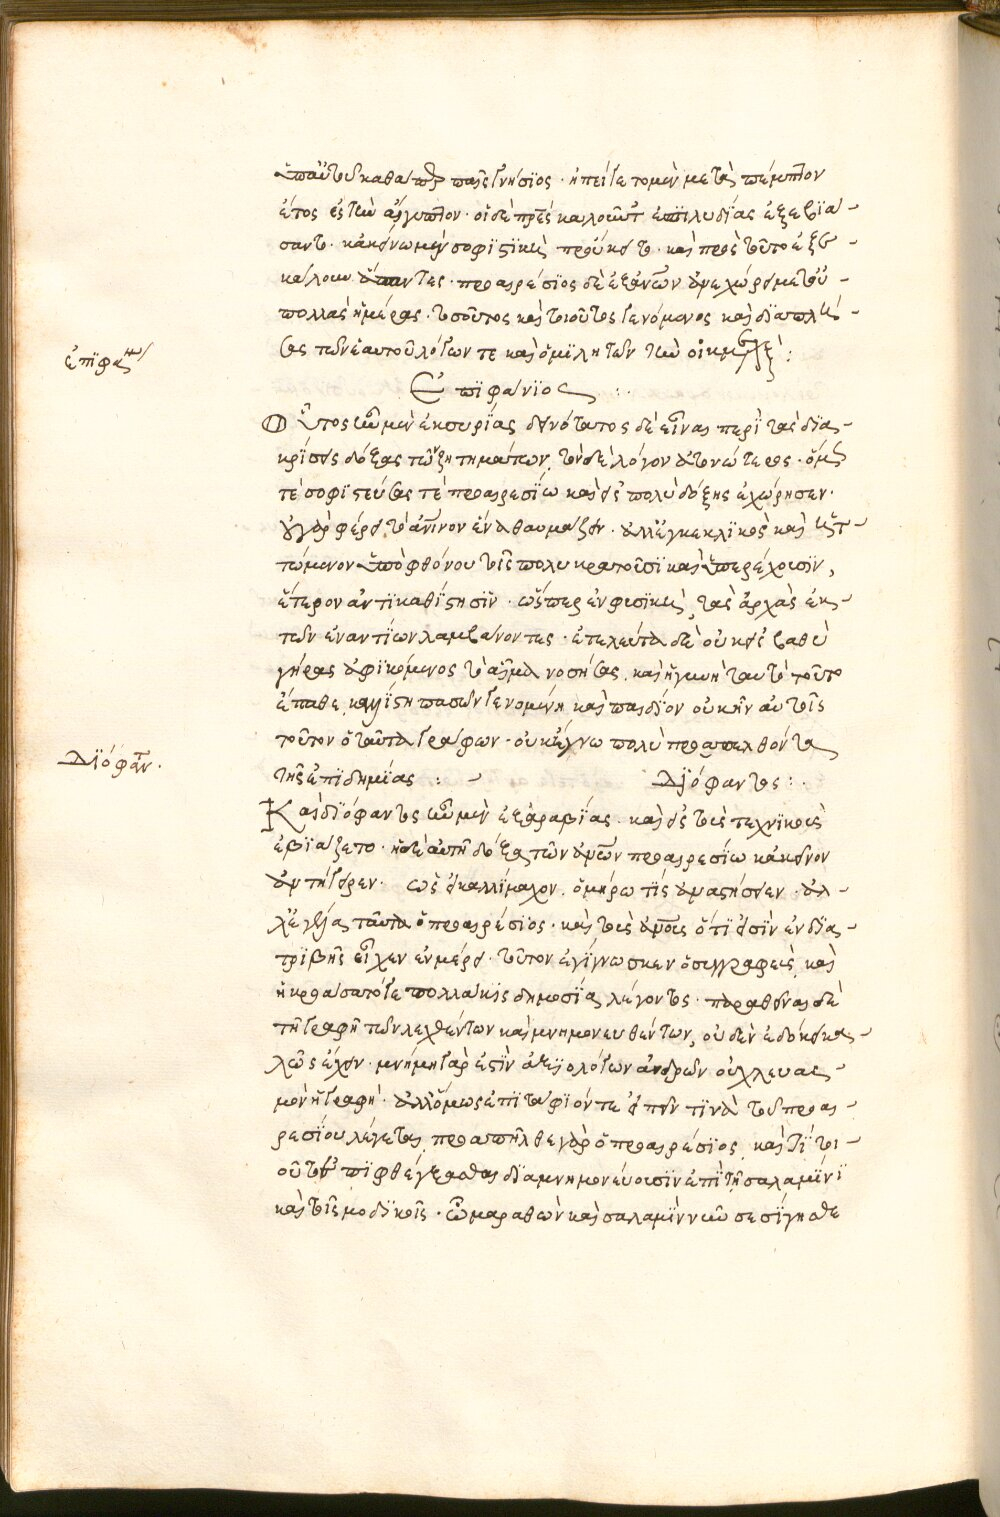 ὑπ' αὐτοῦ καθάπερ παῖς γνήσιος. ἠπείγετο μὲν μετὰ πέμπτον
ἔτος ἐς τὴν αἴγυπτον. οἱ δὲ πατέρες καλοῦντες ἐπὶ λυδίας ἐξεβιά-
σαντο. κἀκείνῳ μὲν σοφιστικὴ προὔκειτο. καὶ πρὸς τοῦτο ἐξε-
κάλουν ἅπαντες. προαιρέσιος δὲ ἐξ ἀνθρώπων ἀνεχώρει μετ' οὐ
πολλὰς ἡμέρας. τοσοῦτος καὶ τοιοῦτος γενόμενος καὶ διαπλή-
σας τῶν ἑαυτοῦ λόγων τε καὶ ὁμιλητῶν τὴν οἰκουμένην:
ἐπιφάνιος
Ἐπιφάνιος :
Οὗτος ἦν μὲν ἐκ συρίας δεινότατος δὲ εἶναι περὶ τὰς δια-
κρίσεις δόξας τῶν ζητημάτων, τὸν δὲ λόγον ἀτονώτερος. ὅμως
τε σοφιστεύσας τε προαιρεσίῳ καὶ εἰς πολὺ δόξης ἐχώρησεν.
οὐ γὰρ φέρει τὸ ἀνθρώπινον ἕνα θαυμάζειν. ἀλλ' ἐγκεκλικὸς καὶ ἡτ-
τώμενον ὑπὸ φθόνου τοῖς πολυκρατοῦσι καὶ ὑπερέχουσιν,
ἕτερον ἀντικαθίστησιν. ὥσπερ ἐν φυσικῇ τὰς ἀρχὰς ἐκ
τῶν ἐναντίων λαμβάνοντες. ἐτελεύτα δὲ οὐκ εἰς βαθὺ
γήρας ἀφικόμενος τὸ αἷμα νοσήσας. καὶ ἡ γυνὴ ταυτὸ τοῦτο
ἔπαθε, καλλίστη πασῶν γενομένη καὶ παιδίον οὐκ ἦν αὐτοῖς
τοῦτον ὁ ταῦτα γράφων. οὐκ ἔγνω πολὺ προαπελθόντα
διόφαντ.
τῆς ἐπιδημίας : Διόφαντος :
Καὶ διόφαντος ἦν μὲν ἐξ ἀραβίας. καὶ εἰς τοὺς τεχνικοὺς
ἐβιάζετο. ἡ δὲ αὐτὴ δόξα τῶν ἀνθρώπων προαιρεσίῳ κἀκεῖνον
ἀντήγειρεν. ὡς εἰ καλλίμαχον. ὁμήρῳ τις ἀναστήσειεν. ἀλ-
λ' ἐγέλα ταῦτα ὁ προαιρέσιος. καὶ τοὺς ἀνθρώπους ὅ τι εἰσὶν ἐν δια-
τριβῆς εἶχεν ἐν μέρει. τοῦτον ἐγίγνωσκεν ὁ συγγραφεύς, καὶ
ἠκροάσατό γε πολλάκις δημοσίᾳ λέγοντος. παραθεῖναι δὲ
τῇ γραφῇ τῶν λεχθέντων καὶ μνημονευθέντων, οὐδὲν ἐδόκει κα-
λῶς ἔχειν. μνήμη γάρ ἐστιν ἀξιολόγων ἀνδρῶν οὐ χλευασ-
μὸν ἡ γραφή. ἀλλ' ὅμως ἐπιτάφιόν τε εἰπεῖν τινὰ τοῦ προαι-
ρεσίου λέγεται, προαπῆλθε γὰρ ὁ προαιρέσιος, καί τι τοι-
οῦτο ἐπιφθέγξασθαι διαμνημονεύουσιν ἐπὶ τῇ σαλαμῖνι
καὶ τοῖς μηδικοῖς. ὦ μαραθὼν καὶ σαλαμὶν νῦν σεσίγησθε